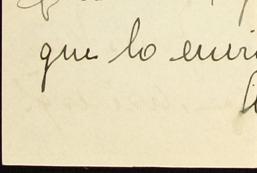 que lo envi